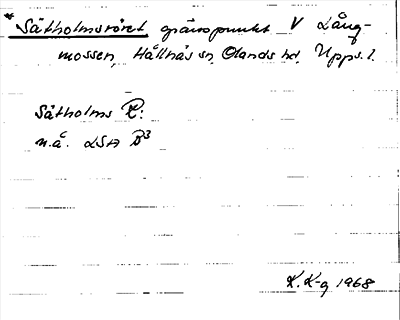 * Sätholmsröret gränspunkt V Lång-
mossen, Hållnäs sn, Olands hd, Upps. l.
Sätholms R:
n.å. LSA B3
K. K-g 1968